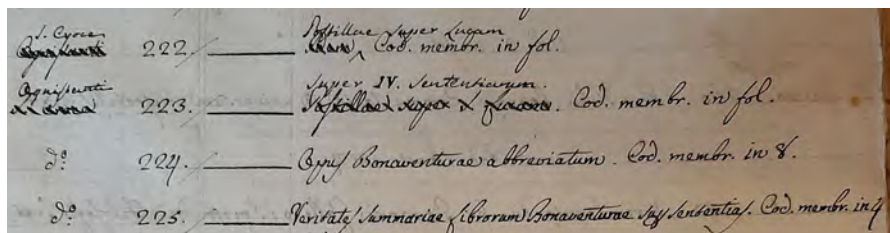 S. Croce Postillae super Lucam
222. Cod. membr. in fol.
Ognisanti super IV. Sententiarum.
223. Postillae super Lucam. Cod. membr. in fol.
do. 224. Opus Bonaventurae abbreviatum. Cod. membr. in 8.
do. 225. Veritates Summariae librorum Bonaventurae sup Sententias. Cod. membr. in 4